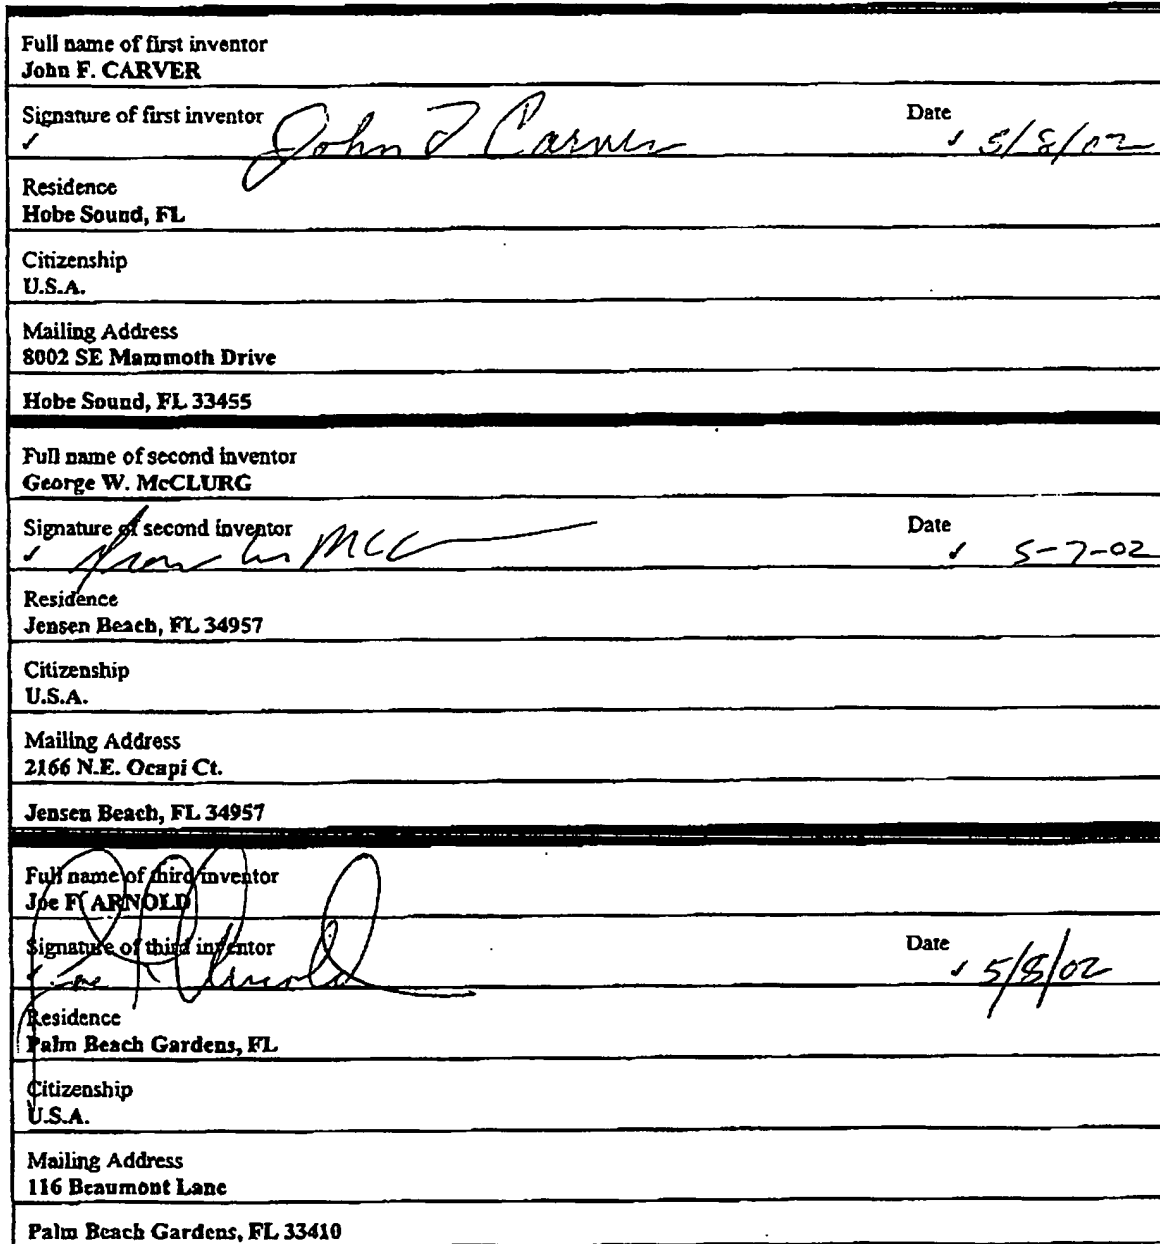 Full name of first inventor
John F. CARVER
Signature of first inventor John F Carver Date
✓ ✓ 5/8/02
Residence
Hobe Sound, FL
Citizenship
U.S.A.
Mailing Address
8002 SE Mammoth Drive
Hobe Sound, FL 33455
Full name of second inventor
George W. McCLURG
Signature of second inventor Date
✓ ✓ 5-7-02
Residence
Jensen Beach, FL 34957
Citizenship
U.S.A.
Mailing Address
2166 N.E. Ocapi Ct.
Jensen Beach, FL 34957
Full name of third inventor
Joe F. ARNOLD
Signature of third inventor Date
✓ Joe F Arnold ✓ 5/8/02
Residence
Palm Beach Gardens, FL
Citizenship
U.S.A.
Mailing Address
116 Beaumont Lane
Palm Beach Gardens, FL 33410